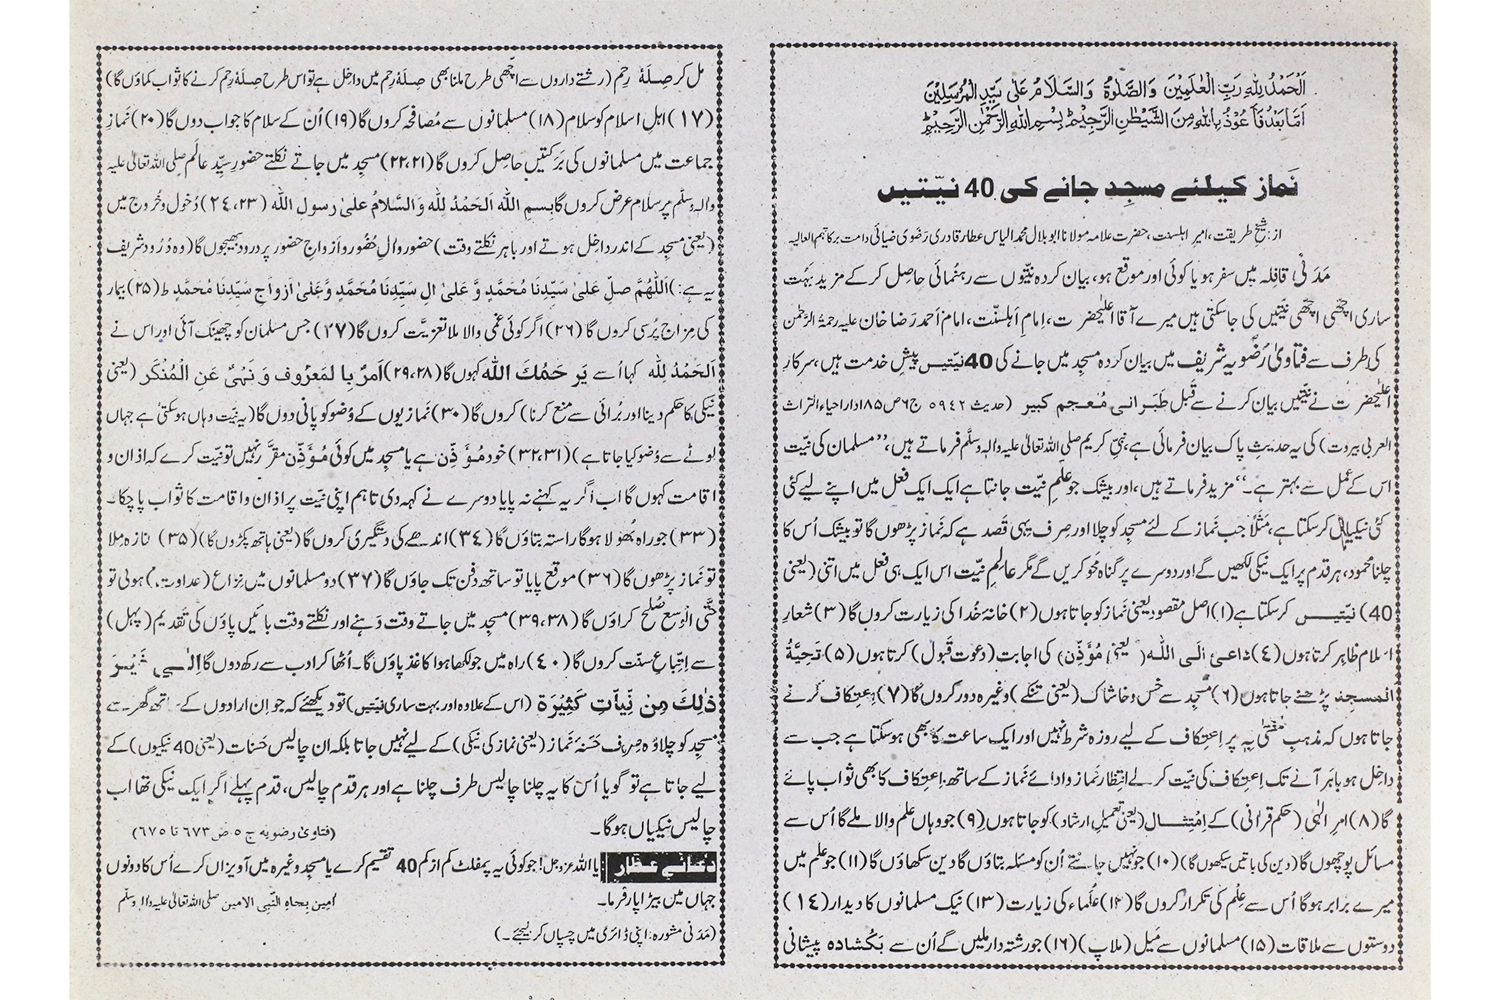 اَلْحَمْدُ لِلّٰہِ رَبِّ الْعٰلَمِیْنَ وَالصَّلٰوۃُ وَالسَّلَامُ عَلٰی سَیِّدِ الْمُرْسَلِیْنَ
اَمَّا بَعْدُ فَاَعُوْذُ بِاللّٰہِ مِنَ الشَّیْطٰنِ الرَّجِیْمِ ط بِسْمِ اللّٰہِ الرَّحْمٰنِ الرَّحِیْمِ ط
نَماز کیلئے مسجِد جانے کی 40 نیّتیں
از: شیخِ طریقت، امیرِ اہلسنت، حضرت علامہ مولانا ابو بلال محمد الیاس عطار قادری رَضَوی ضیائی دامت برکاتہم العالیہ
مَدَنی قافلہ میں سفر ہو یا کوئی اور موقع ہو، بیان کردہ نیّتوں سے رہنمائی حاصل کر کے مزید بَہُت
ساری اچھی اچھی نیّتیں کی جاسکتی ہیں میرے آقا اعلیٰحضرت، امامِ اَہلسنّت، امام اَحمد رَضا خان علیہ رحمۃ الرَّحْمٰن
کی طرف سے فتاویٰ رَضَویہ شریف میں بیان کردہ مسجد میں جانے کی 40 نیّتیں پیشِ خدمت ہیں، سرکارِ
اعلیٰحضرت نے نیّتیں بیان کرنے سے قَبل طَبَرانی مُعجم کبیر (حدیث ۵۹۴۲ ج۶ ص۱۸۵ دار احیاء التراث
العربی بیروت) کی یہ حدیثِ پاک بیان فرمائی ہے، نبیِّ کریم صلی اللہ تعالیٰ علیہ والہ وسلّم فرماتے ہیں، ’’مسلمان کی نیّت
اس کے عمل سے بہتر ہے۔‘‘ مزید فرماتے ہیں، اور بیشک جو علمِ نیّت جانتا ہے ایک ایک فعل میں اپنے لیے کئی
کئی نیکیاں کرسکتا ہے، مَثَلاً جب نَماز کے لئے مسجِد کو چلا اور صِرف یہی قَصد ہے کہ نَماز پڑھوں گا تو بیشک اُس کا
چلنا محمود، ہر قدم پر ایک نیکی لکھیں گے اور دوسرے پر گناہ محو کریں گے مگر عالمِ نیّت اس ایک ہی فعل میں اتنی (یعنی
40) نیّتیں کرسکتا ہے (۱) اصل مقصود یعنی نَماز کو جاتا ہوں (۲) خانۂ خُدا کی زیارت کروں گا (۳) شعارِ
اسلام ظاہر کرتا ہوں (۴) دَاعیَ اِلَی اللّٰہ (یعنی مُؤَذِّن) کی اجابت (دعوت قبول) کرتا ہوں (۵) تَحِیَّۃُ
الْمسجِد پڑھنے جاتا ہوں (۶) مسجد سے خَس و خاشاک (یعنی تنکے) وغیرہ دور کروں گا (۷) اِعتِکاف کرنے
جاتا ہوں کہ مذہبِ مُفتٰی بِہ پر اِعتِکاف کے لیے روزہ شرط نہیں اور ایک ساعت کا بھی ہوسکتا ہے جب سے
داخِل ہو باہَر آنے تک اِعتِکاف کی نیّت کرلے اِنتِظارِ نَماز و ادائے نَماز کے ساتھ اِعتِکاف کا بھی ثواب پائے
گا (۸) اَمرِ اِلٰہی (حکمِ قرآنی) کے اِمتِثال (یعنی تعمیلِ ارشاد) کو جاتا ہوں (۹) جو وہاں علم والا ملے گا اُس سے
مسائل پوچھوں گا (دین کی باتیں سیکھوں گا) (۱۰) جو نہیں جانتے اُن کو مسئلہ بتاؤں گا دین سکھاؤں گا (۱۱) جو علم میں
میرے برابر ہو گا اُس سے عِلم کی تکرار کروں گا (۱۲) عُلَماء کی زیارت (۱۳) نیک مسلمانوں کا دیدار (۱۴)
دوستوں سے ملاقات (۱۵) مسلمانوں سے مَیل (ملاپ) (۱۶) جو رِشتہ دار ملیں گے اُن سے بَکُشادہ پیشانی
مل کر صِلَۂ رِحم (رشتے داروں سے اچّھی طرح ملنا بھی صِلَۂ رحم میں داخل ہے تو اس طرح صِلَۂ رحم کرنے کا ثواب کماؤں گا)
(۱۷) اہلِ اسلام کو سلام (۱۸) مسلمانوں سے مُصافَحہ کروں گا (۱۹) اُن کے سلام کا جواب دوں گا (۲۰) نَمازِ
جماعت میں مسلمانوں کی بَرَکتیں حاصِل کروں گا (۲۲،۲۱) مسجِد میں جاتے نکلتے حضور سیِّدِ عالَم صلی اللہ تعالیٰ علیہ
والہ وسلّم پر سلام عرض کروں گا بِسمِ اللّٰہِ اَلْحَمْدُ لِلّٰہِ وَالسَّلَامُ عَلیٰ رسول اللّٰہ (۲۴،۲۳) دُخول و خُروج میں
(یعنی مسجد کے اندر داخل ہوتے اور باہر نکلتے وقت) حضور و اٰلِ حُضُور و اَزواجِ حضور پر درود بھیجوں گا (وہ دُرُود شریف
یہ ہے:) اَللّٰھُمَّ صلِ عَلیٰ سَیِّدِنَا مُحَمَّدٍ وَّ عَلیٰ اٰلِ سَیِّدِنَا مُحَمَّدٍ وَّعَلیٰ اَزْوَاجِ سَیِّدِنَا مُحَمَّدٍ ط (۲۵) بیمار
کی مزاج پُرسی کروں گا (۲۶) اگر کوئی غمی والا ملا تعزیَت کروں گا (۲۷) جس مسلمان کو چھینک آئی اور اس نے
اَلحَمْدُ لِلّٰہِ کہا اُسے یَرْحَمُکَ اللّٰہ کہوں گا (۲۹،۲۸) اَمرٌ بِالْمَعْرُوف وَ نَہْیٌ عَنِ الْمُنْکَر (یعنی
نیکی کا حکم دینا اور بُرائی سے منع کرنا) کروں گا (۳۰) نَمازیوں کے وُضو کو پانی دوں گا (یہ نیّت وہاں ہوسکتی ہے جہاں
لوٹے سے وُضو کیا جاتا ہے) (۳۲،۳۱) خود مُؤَذِّن ہے یا مسجِد میں کوئی مُؤَذِّن مقرَّر نہیں تو نیّت کرے کہ اذان و
اقامت کہوں گا اب اگر یہ کہنے نہ پایا دوسرے نے کہہ دی تاہم اپنی نیّت پر اذان و اقامت کا ثواب پا چکا۔
(۳۳) جو راہ بھُولا ہو گا راستہ بتاؤں گا (۳۴) اندھے کی دستگیری کروں گا (یعنی ہاتھ پکڑوں گا) (۳۵) جنازہ ملا
تو نَماز پڑھوں گا (۳۶) موقع پایا تو ساتھ دَفن تک جاؤں گا (۳۷) دو مسلمانوں میں نِزاع (عداوت) ہوئی تو
حتَّی الْوَسع صُلح کراؤں گا (۳۹،۳۸) مسجِد میں جاتے وقت دَہنے اور نکلتے وقت بائیں پاؤں کی تقدیم (پہل)
سے اِتّباعِ سنّت کروں گا (۴۰) راہ میں جو لکھا ہوا کاغذ پاؤں گا۔ اُٹھا کر ادب سے رکھ دوں گا اِلٰی غَیْرِ
ذٰلِکَ مِنْ نِّیَّاتٍ کَثِیْرَۃ (اس کے علاوہ اور بہت ساری نیّتیں) تو دیکھئے کہ جو اِن ارادوں کے ساتھ گھر سے
مسجِد کو چلا وُہ صِرف حَسَنۂ نَماز (یعنی نماز کی نیکی) کے لیے نہیں جاتا بلکہ ان چالیس حَسَنات (یعنی 40 نیکیوں) کے
لیے جاتا ہے تو گویا اُس کا یہ چلنا چالیس طرف چلنا ہے اور ہر قدم چالیس، قدم پہلے اگر ایک نیکی تھا اب
چالیس نیکیاں ہوگا۔ (فتاویٰ رضویہ ج ۵، ص ۶۷۳ تا ۶۷۵)
دُعائے عطّار: یا اللہ عزوجل! جو کوئی یہ پمفلٹ کم از کم 40 تقسیم کرے یا مسجد وغیرہ میں آویزاں کرے اُس کا دونوں
جہاں میں بیڑا پار فرما۔ اٰمِین بِجاہِ النَّبِیِّ الْاَمین صلی اللہ تعالیٰ علیہ والہ وسلّم
(مَدَنی مشورہ: اپنی ڈائری میں چسپاں کر لیجئے۔)